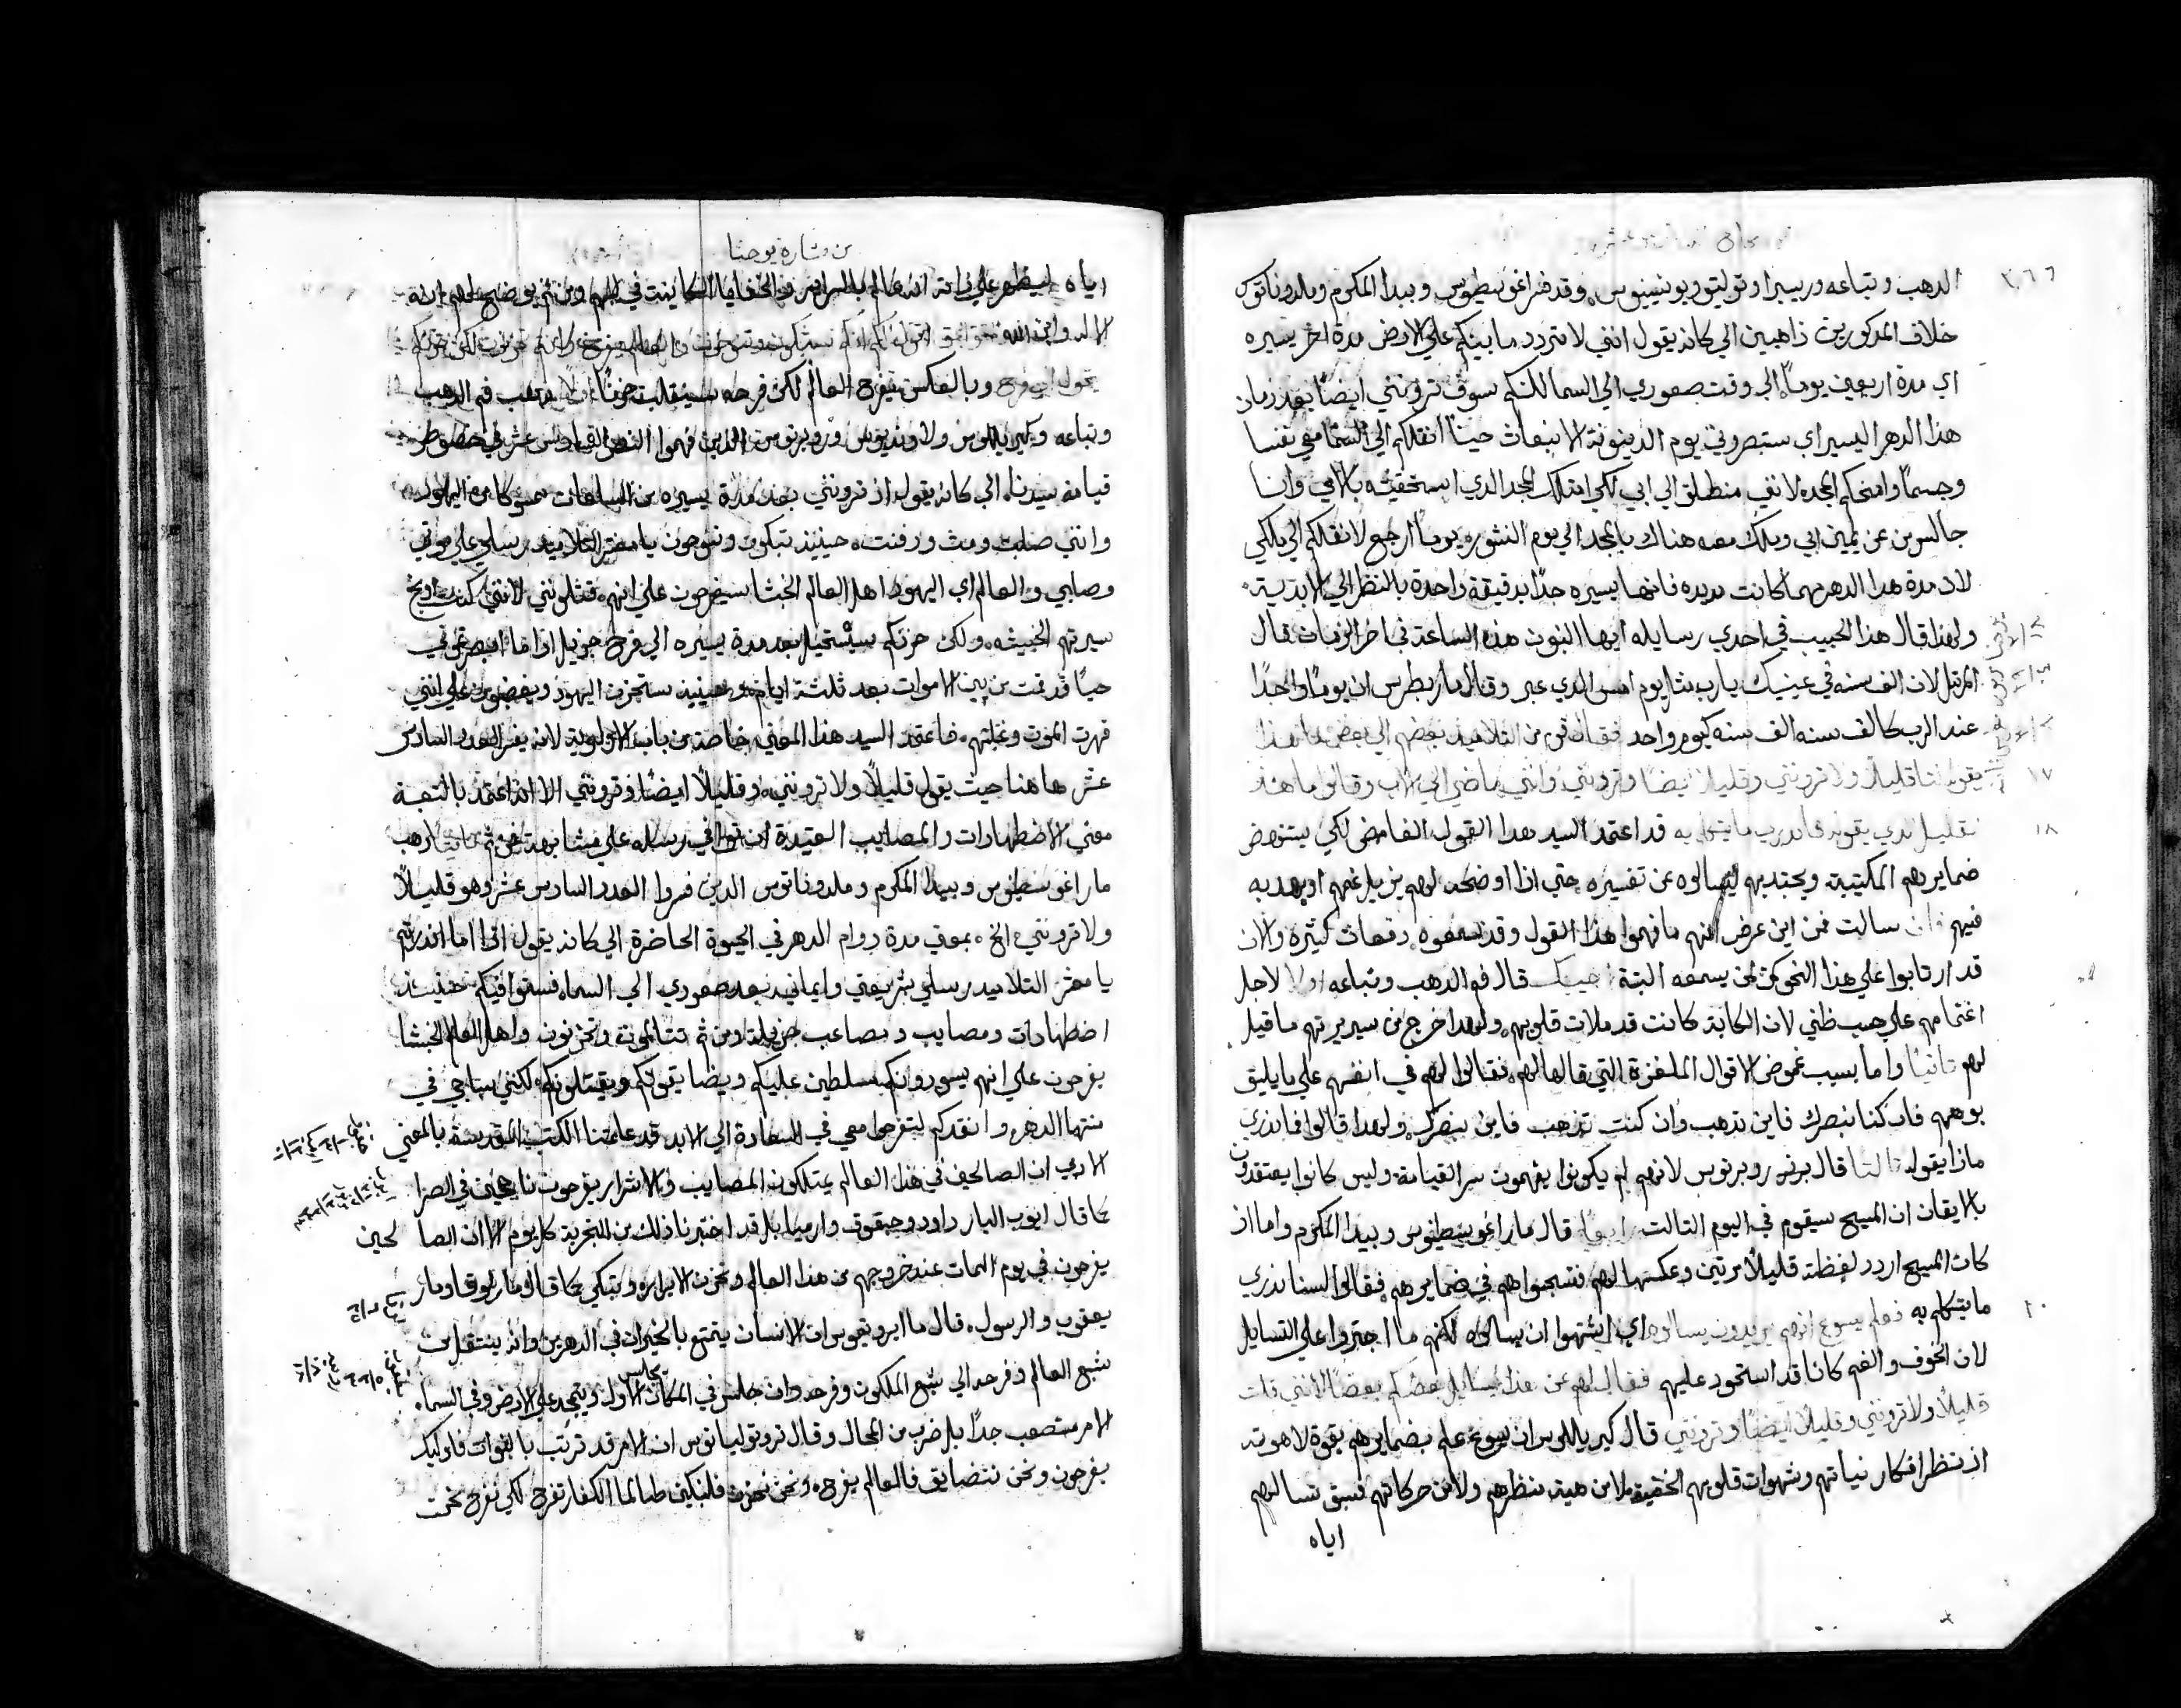 ٣٦٦
الدهب وتباعه وريبيرا وتوليتو ويونيتيوس. وقد فسر اغوسطينوس وبيدا المكرم وملدوناتوس
خلاف المدكورين ذاهبين الي كانه يقول انني لاتردد ما بينكم علي الارض مدة اخر يسيره
اي مدة اربعين يوماً الي وقت صعودي الي السما لكنكم سوف تروني ايضاً بعد زمان
هذا الدهر اليسير اي ستبصروني يوم الدينونة الانبعاث حيناً انقلكم الي السما معي نفسا
وجسماً وامنحكم المجد لانني منطلق الي ابي لكي امتلك المجد الذي استحقيته بالامي وانا
جالس عن يمين ابي وملك معه هناك بالمجد الي يوم النشور يوماً ارجع لانقلكم الي ملكي
لان مدة هدا الدهر مهما كانت مديده فانها يسيره جداً بدقيقة واحدة بالنظر الي الابدية.
ولهذا قال هذا الحبيب في احدي رسايله ايها البنون هذه الساعة في اخر الزمان قال
المرتل لان الف سنه في عينيك يارب مثل يوم امس الدي عبر وقال مار بطرس ان يوماً واحداً
عند الرب كالف سنه الف سنه كيوم واحد فقال قوم من التلاميد بعضهم الي بعض ما هذا
١٧ يقول لنا قليلاً ولا تروني وقليلاً ايضاً وتروني وانني ماضي الي الاب وقالوا ما هذا
١٨ القليل الدي يقوله ما ندري ما يتكلم به قد اعتمد السيد هدا القول الغامض لكي يستنهض
ضمايرهم المكتيبة ويجتديهم ليسالوه عن تفسيره حتي اذا اوضحه لهم يزيل غمهم
فيهم فان سالت فمن اين عرض انهم ما فهموا هذا القول وقد سمعوه دفعات كثيره والان
قد ارتابوا علي هذا النحو كمن لم يسمعه البتة اجيبك قال فم الدهب وتباعه اولاً لاجل
اغتمامهم علي حسب ظني لان الكابة كانت قد ملات قلوبهم ولهدا خرج من سريرتهم ما قيل
لهم ثانياً واما بسبب غموض الاقوال الملغزة التي قالها لهم فقالوا لهم في انفسهم علي ما يليق
بوهمهم فان كنا نبصرك فاين تدهب وان كنت تدهب فاين نبصرك ولهدا قالوا فما ندري
ماذا يقول ثالثاً قال برنو روبرتوس لانهم لم يكونوا يفهمون سر القيامة وليس كانوا يعتقدون
بالايقان ان المسيح سيقوم في اليوم التالت رابعاً قال مار اغوسطينوس وبيدا المكرم واما اذ
كان المسيح اردد لفظة قليلاً مرتين وعكسهما لهم فتسجسوا هم في ضمايرهم فقالوا لسنا ندري
٢٠ ما يتكلم به فعلم يسوع انهم يريدون يسالوه اي اشتهوا ان يسالوه لكنهم ما اجتروا علي التسايل
لان الخوف والغم كانا قد استحود عليهم فقال لهم عن هذا يسايل بعضكم بعضاً لانني قلت
قليلاً ولا تروني وقليلاً ايضاً وتروني قال كيريللوس ان يسوع علم بضمايرهم بقوة لاهوته
اذ نظر افكار نياتهم وشهوات قلوبهم الخفية لا من هيية منظرهم ولا من حركاتهم فسبق تسالهم
اياه
من بشارة يوحنا
اياه ليظهر علي ذاته انه عالم بالسراير والخفايا الكاينة في قلوبهم ومن ثم يوضح لهم انه
الاله وابن الله حقاً حقاً اقول لكم انكم ستبكون وتنوحون والعالم يفرح وانتم تحزنون لكن حزنكم
يحول الي فرح وبالعكس سيفرح العالم لكن فرحه سينقلب حزناً اولاً دهب فم الدهب
وتباعه وكيريللوس ولاونديوس وروبرتوس الدين فهموا النص السادس عشر في خصوص
قيامة سيدنا. الي كانه يقول اذ تروني بعد مدة يسيره من الساعات ممسوكا من اليهود
وانني صلبت ومت ودفنت. حينيد تبكون وتنوحون يا معشر التلاميد رسلي علي موتي
وصلبي والعالم اي اليهود اهل العالم الخبثا سيفرحون علي انهم قتلوني لانني كنت اوبخ
سيرتهم الخبيثه. ولكن حزنكم سيستحيل بعد مدة يسيره الي فرح جزيل اذا ما ابصرتموني
حياً قد قمت من بين الاموات بعد ثلثة ايام وحينيد ستحزن اليهود ويغضبون علي انني
قهرت الموت وغلبتهم. فاعتمد السيد هذا المعني خاصة من باب الاولوية لانه يفسر العدد السادس
عشر هاهنا حيث يقول قليلاً ولا تروني. وقليلاً ايضاً وتروني الا انه اعتمد بالتبعية
معني الاضطهادات والمصايب العتيدة ان توافي رسله علي مشابهة ثانياً دهب
مار اغوسطينوس وبيدا المكرم وملدوناتوس الدين فسروا العدد السادس عشر وهو قليلاً
ولا تروني الخ. بمعني مدة دوام الدهر في الحيوة الحاضرة الي كانه يقول اذا اما اندرتم
يا معشر التلاميد رسلي بشريعتي وايماني بعد صعودي الي السما. فستوافيكم حينيد
اضطهادات ومصايب ومصاعب جزيلة ومن ثم تتالمون وتحزنون واهل العالم الخبثا
يفرحون علي انهم يسودوانكم مسلطين عليكم ويضايقونكم ويقتلونكم لكنني ساجي في
منتها الدهر وانقدكم لتفرحوا معي في السعادة الي الابد قد علمتنا الكتب المقدسة بالمعني
الادبي ان الصالحين في هذا العالم يمتلكون المصايب والاشرار يفرحون ناجحين في الضرا
كما قال ايوب البار داود وحبقوق وارميا بل قد اختبرنا ذلك من التجربة كل يوم الا ان الصالحين
يفرحون في يوم الممات عند خروجهم من هذا العالم وتحزن الاشرار وتبكي كما قال مار لوقا ومار
يعقوب والرسول. قال مار ايرونيموس ان الانسان يتمتع بالخيرات في الدهرين وانه ينتقل من
شبع العالم وفرحه الي شبع الملكوت وفرحه وان جلس في المكان الاول ويتمجد علي الارض وفي السما.
الامر مستصعب جداً بل ضرب من المحال وقال ترتوليانوس ان الامر قد ترتب بالنوبات فاوليك
يفرحون ونحن نتضايق فالعالم يفرح. ونحن نحزن فلنبكين طالما الكفار تفرح لكي نفرح نحن